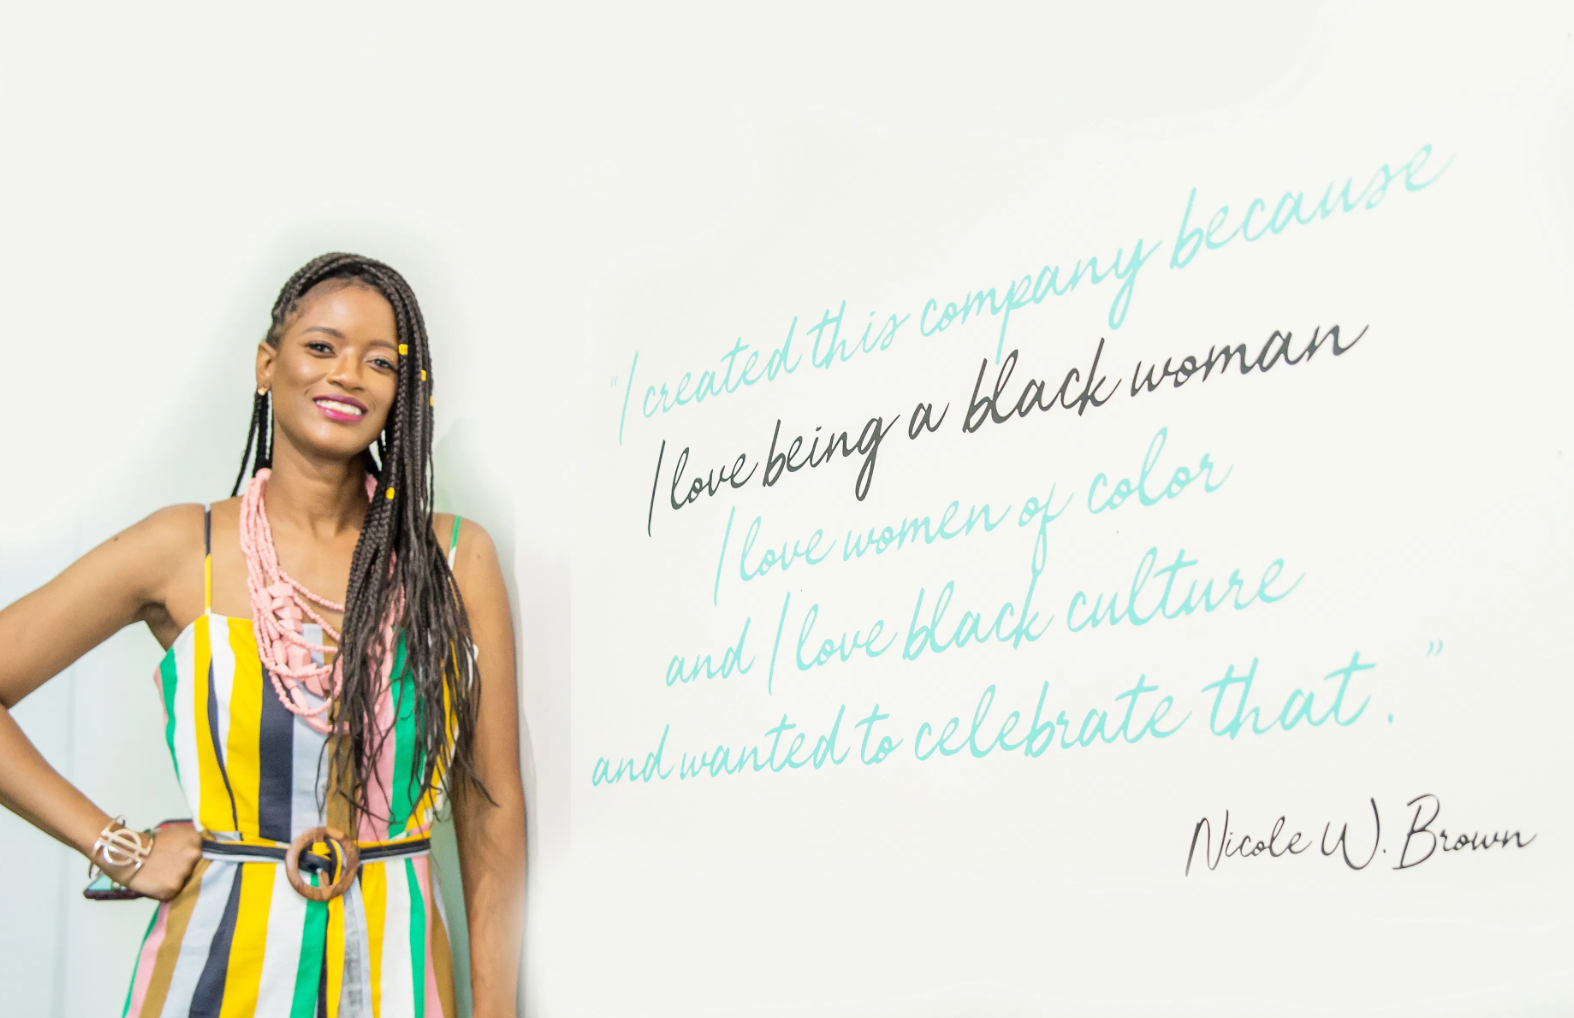 "I created this company because
I love being a black woman
I love women of color
and I love black culture
and wanted to celebrate that."
Nicole W. Brown